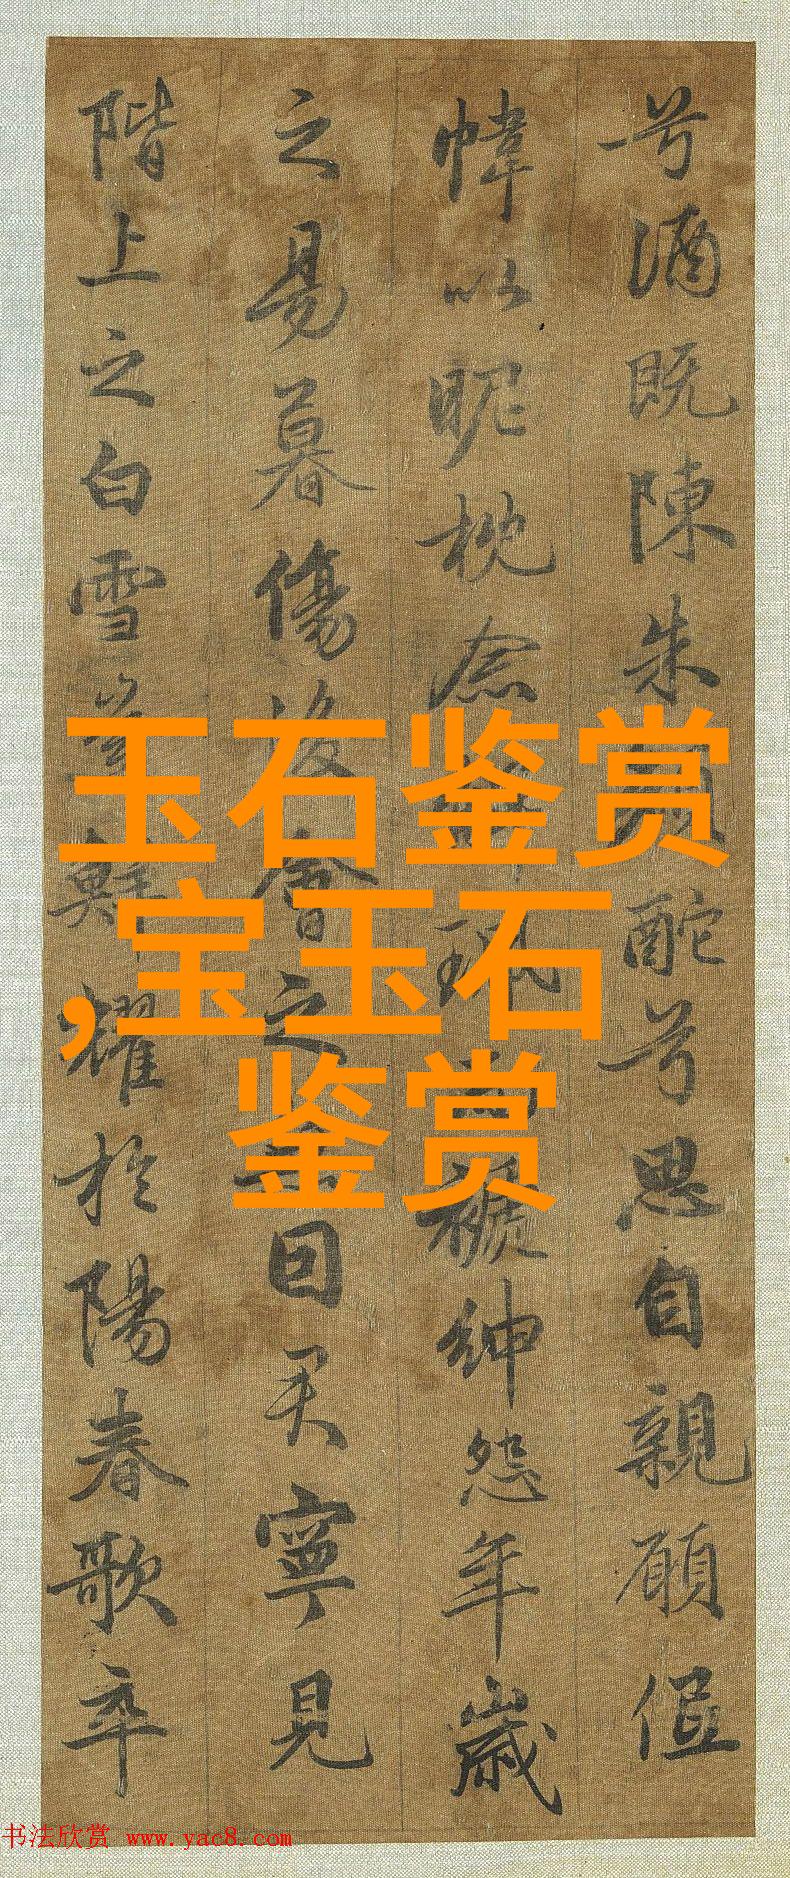 兮酒既陳朱酡兮思自親願低
幃以昵枕念珮褫紳怨年歲
之易暮傷後會之因君寧見
階上之白雪豈鮮耀於陽春歌卒
玉石鉴赏
,宝玉石
鉴赏
书法欣赏 www.yac8.com